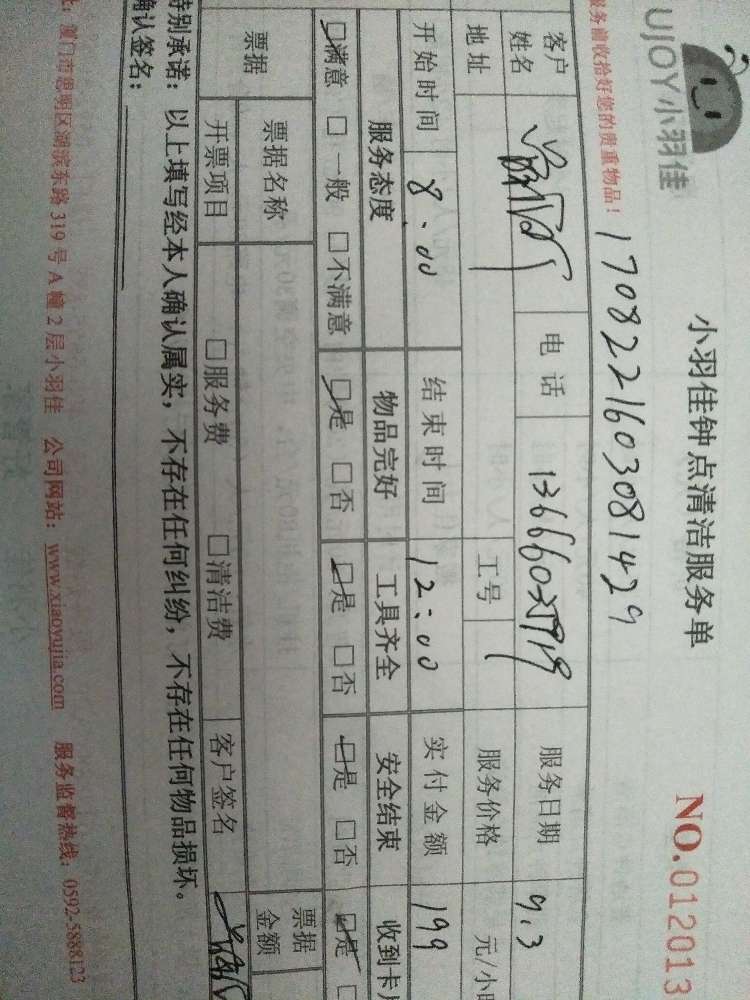 UJOY小羽佳
小羽佳钟点清洁服务单
NO.012013
服务前收拾好您的贵重物品！
1708221603081429
客户姓名 电话 服务日期 9.3
地址 工号 服务价格 元/小
开始时间 8:00 结束时间 12:00 实付金额 199
服务态度 物品完好 工具齐全 安全结束 收到卡
☑满意 □一般 □不满意 ☑是 □否 ☑是 □否 ☑是 □否 ☑是 □
票据 票据名称 票据金额
开票项目 □服务费 □清洁费 客户签名
特别承诺：以上填写经本人确认属实，不存在任何纠纷，不存在任何物品损坏。
确认签名：
厦门市思明区湖滨东路319号A幢2层小羽佳 公司网站：www.xiaoyujia.com 服务监督热线：0592-5888123